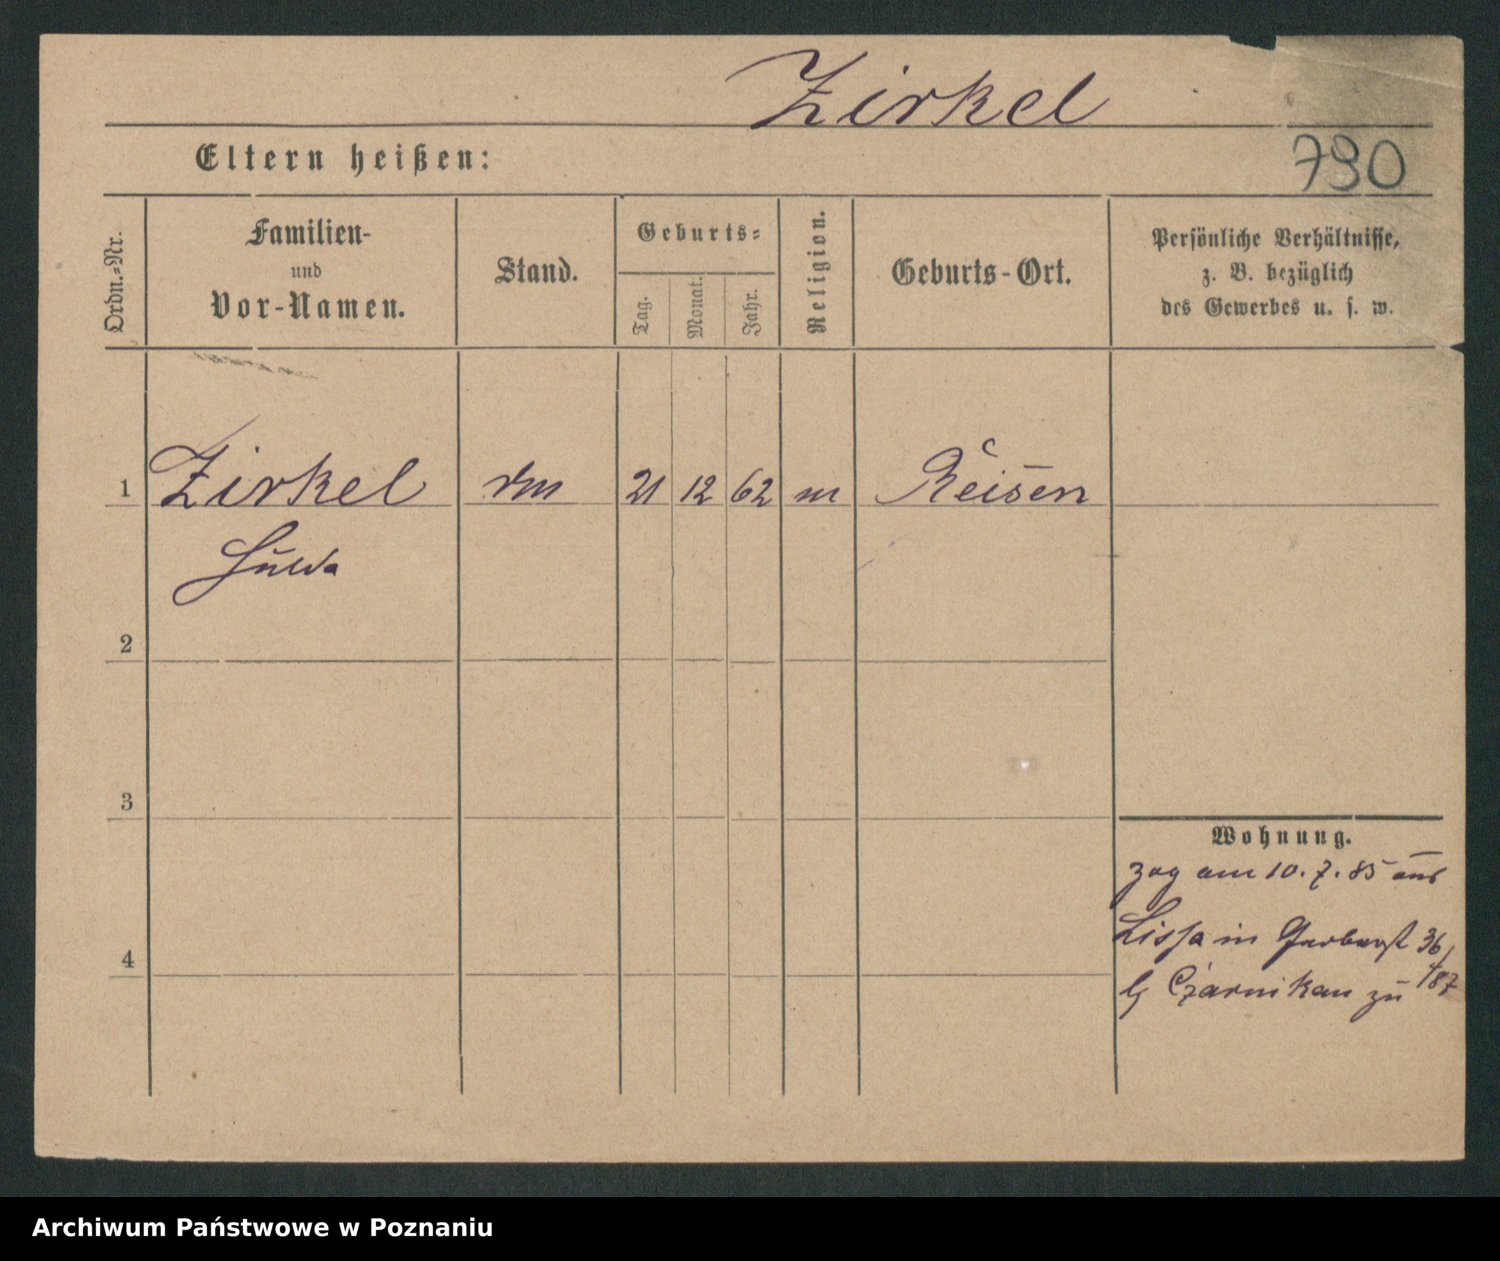 Zirkel
Eltern heißen:
790
Ordn.-Nr.
Familien-
und
Vor-Namen.
Stand.
Geburts-
Tag.
Monat.
Jahr.
Religion.
Geburts-Ort.
Persönliche Verhältnisse,
z. B. bezüglich
des Gewerbes u. s. w.
1 Zirkel 21 12 62 m Reisen
Hulda
2
3
4
Wohnung.
zog am 10. 7. 85 aus
Lissa in Gerberst 36
Czarnikau zu /87
Archiwum Państwowe w Poznaniu